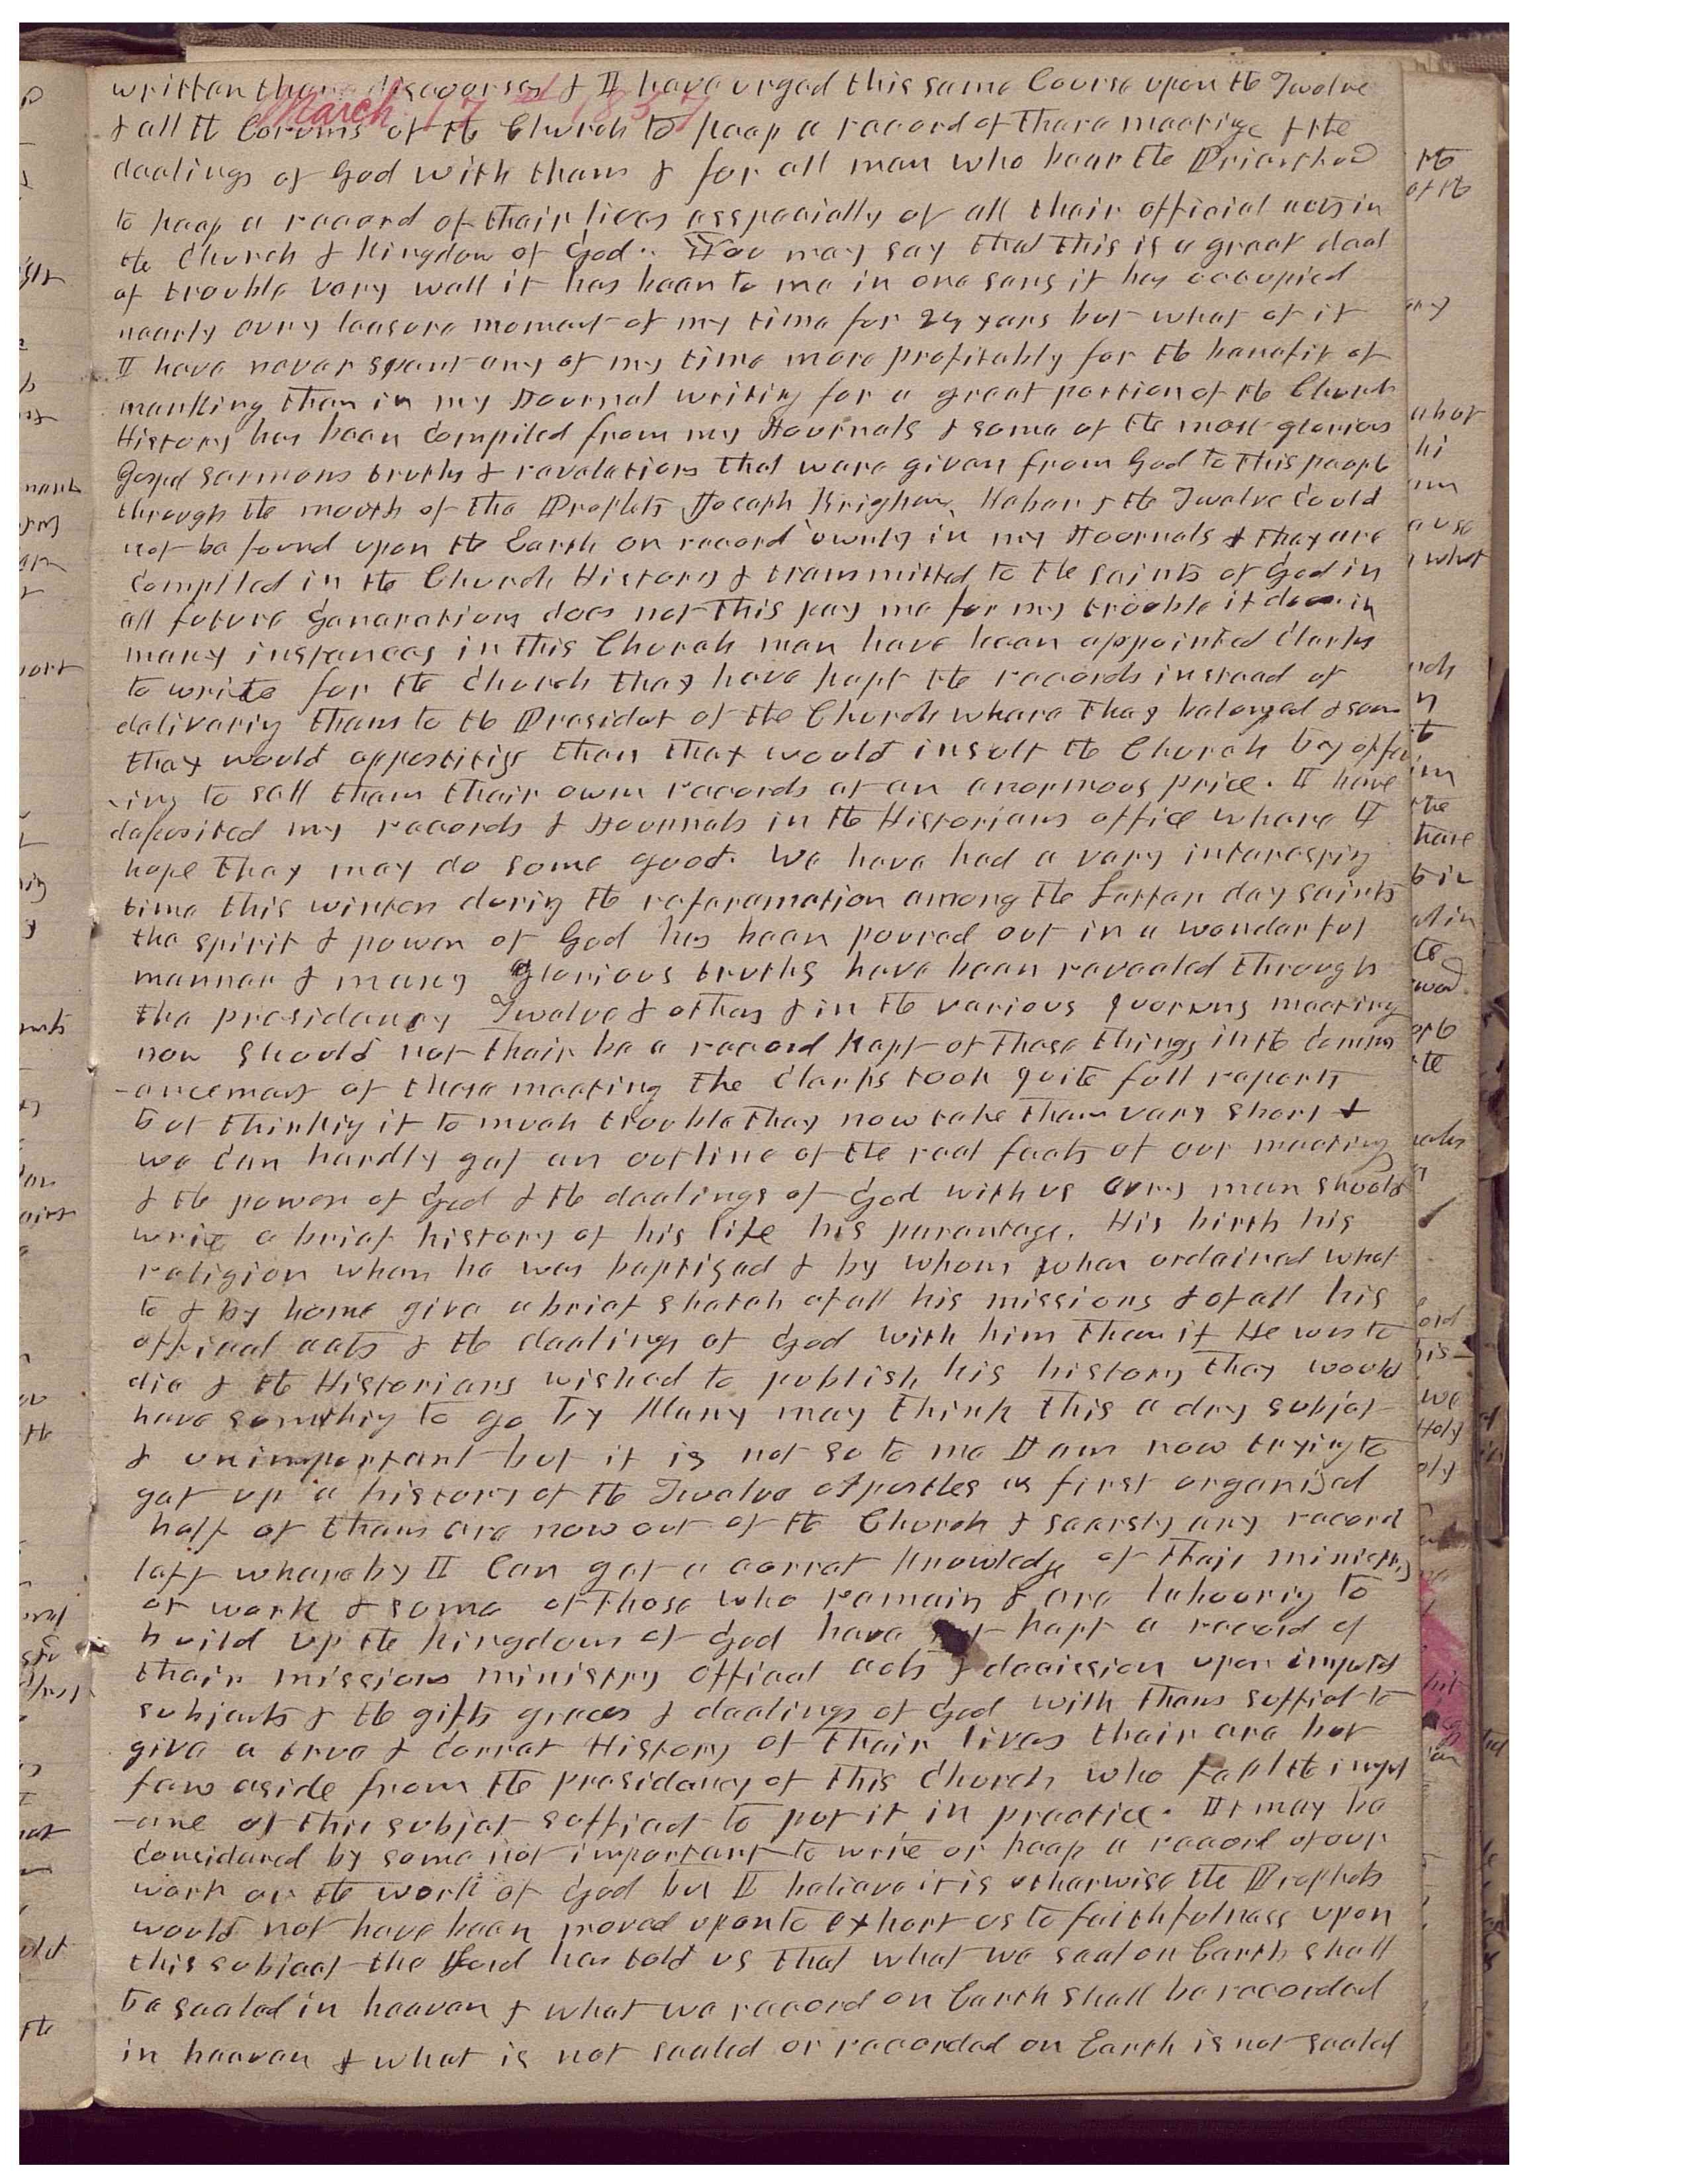 March 17 1857
written there discourses & I have urged this same Course upon the Twelve
& all the Corums of the Church to keep a record of there meetings & the
dealings of God with them & for all men who bear the Priesthood
to keep a record of their lives esspecially of all their official acts in
the Church & Kingdom of God. You may say that this is a great deal
of trouble very well it has been to me in one sens it has occupied
nearly evry leasure moment of my time for 24 years but what of it
I have never spent any of my time more profitably for the benefit of
manking than in my Journal writing for a great portion of the Church
History has been compiled from my Journals & some of the most glorious
Gospel sermons truths & revelations that were given from God to this people
through the mouth of the Prophets Joseph Brigham, Heber & the Twelve could
not be found upon the Earth on record ownly in my Journals & they are
compiled in the Church History & transmitted to the saints of God in
all future Generations does not this pay me for my trouble it does in
many instances in this Church men have been appointed Clerks
to write for the Church they have kept the records instead of
delivering them to the President of the Church where they belonged & soon
they would appostitise then they would insult the Church by offer
-ing to sell them their own records at an enormous price. I have
deposited my records & Journals in the Historians office where I
hope they may do some good. We have had a very interesting
time this winter during the reformation among the Latter day saints
the spirit & power of God has been poured out in a wonderful
manner & many Glorious truths have been revealed through
the presidency Twelve & others & in the various quorums meeting
now should not their be a record kept of these things in the comm
-encement of these meeting the Clerks took quite full reports
but thinking it to much trouble they now take them very short &
we can hardly get an outline of the real facts of our meeting
& the power of God & the dealings of God with us evry man should
write a brief history of his life his parentage. His birth his
religion when he was baptised & by whom when ordained what
to & by home give a brief sketch of all his missions & of all his
official acts & the dealings of God with him then if He was to
die & the Historians wished to publish his history they would
have somthing to go by Many may think this a dry subject
& unimportant but it is not so to me I am now trying to
get up a history of the Twelve Apostles as first organised
half of them are now out of the Church & scarsly any record
left whereby I can get a corret knowledge of their ministry
or work & some of those who remain & are labooring to
build up the kingdom of God have not kept a record of
their missions ministry official acts & decission upon important
subjects & the gifts graces & dealings of God with them sufficient to
give a true & corret History of their lives their are but
few aside from the presidency of this church who felt the import
-ance of this subjet sufficient to put it in practice. It may be
considered by some not important to write or keep a record of our
work or the work of God but I believe it is otherwise the Prophets
would not have been moved upon to exhort us to faithfulness upon
this subject the Lord has told us that what we seal on Earth shall
be sealed in heaven & what we record on Earth shall be recorded
in heaven & what is not sealed or recorded on Earth is not sealed